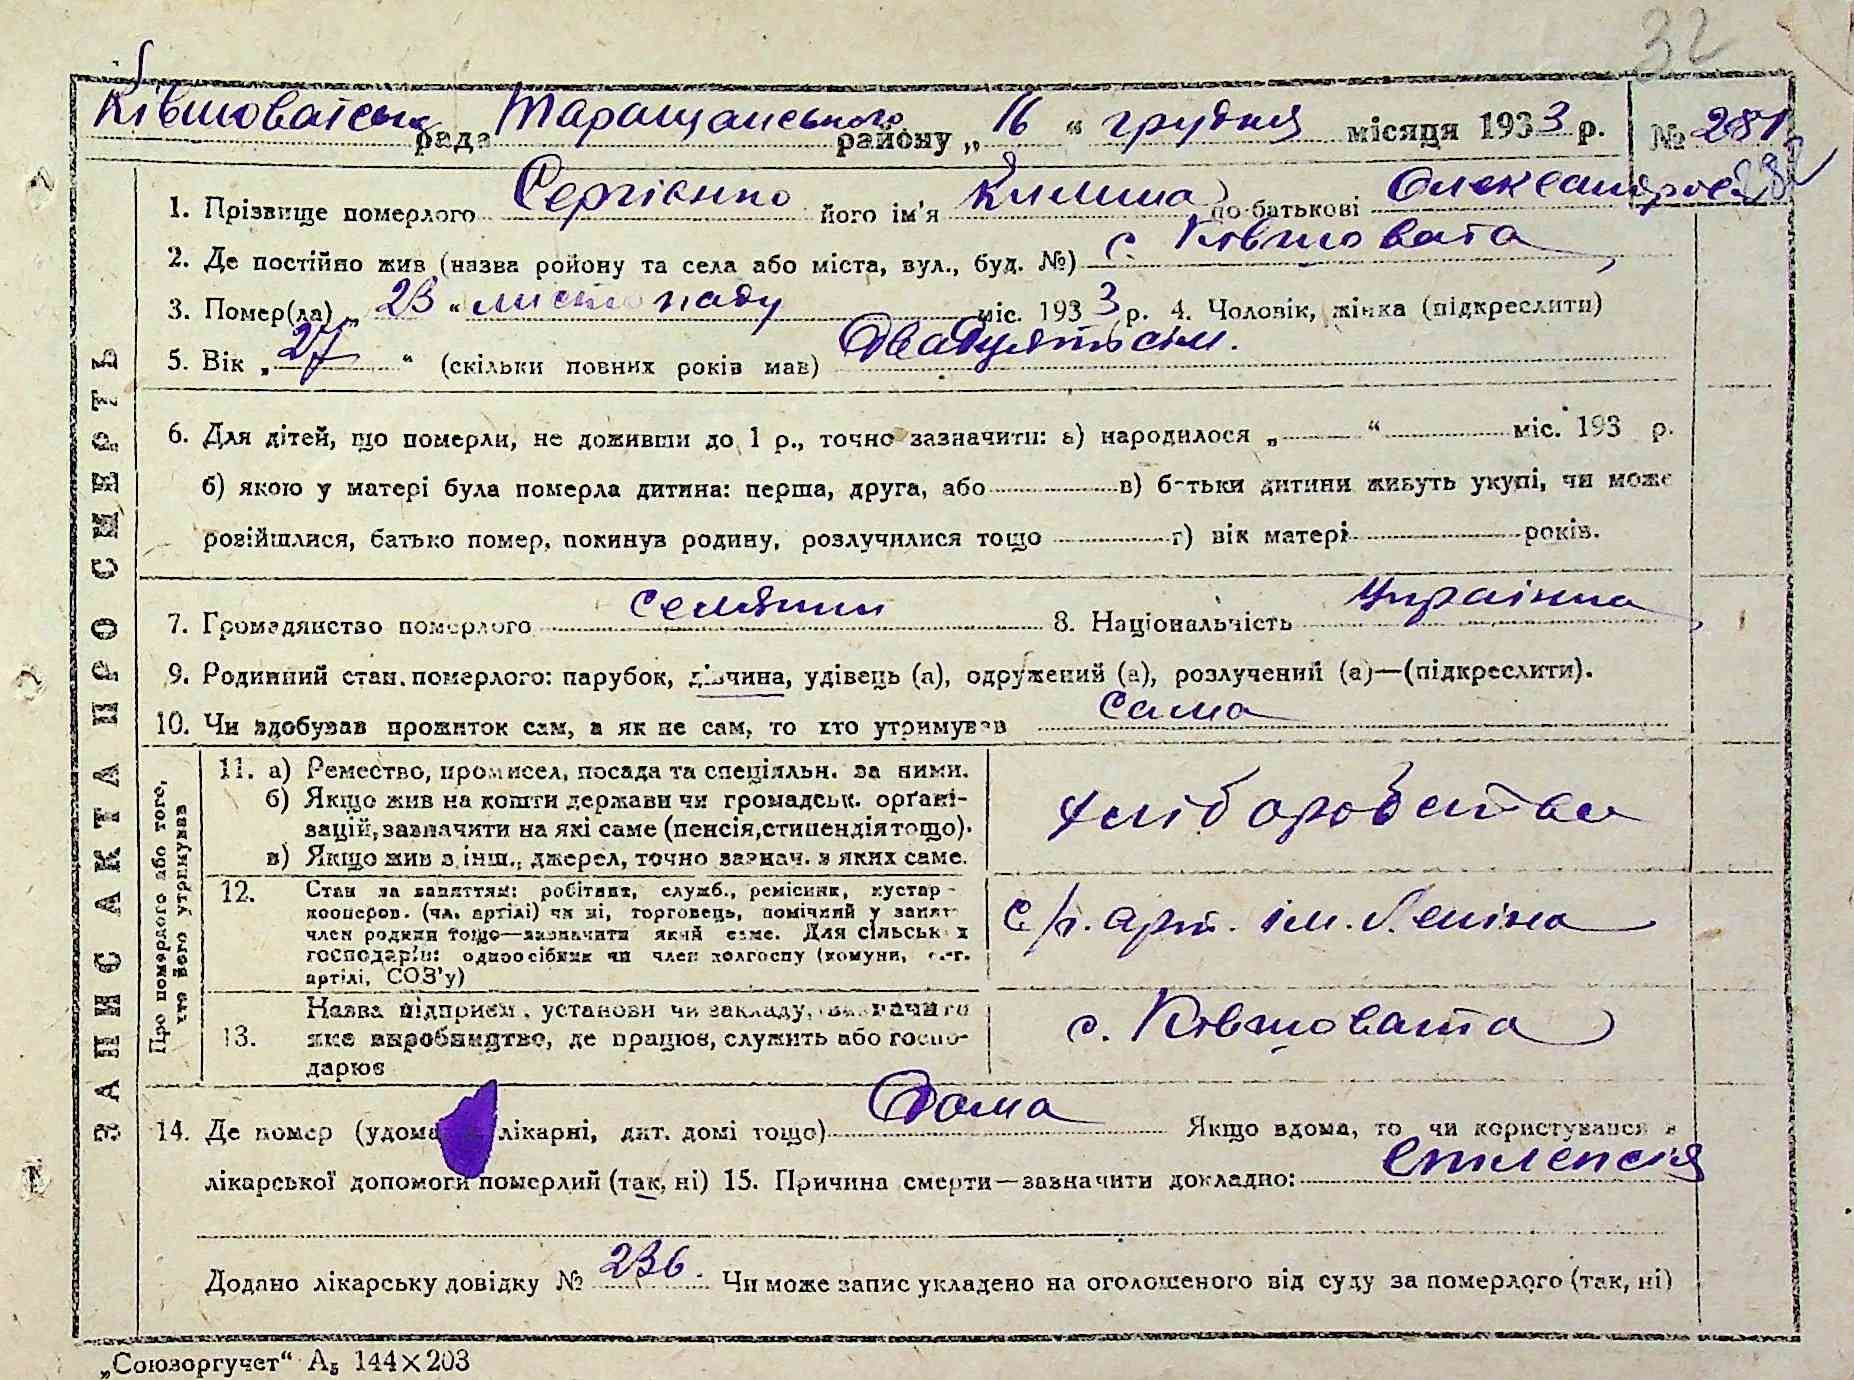 32
Ківшоватська рада Таращанського району „ 16 “ грудня місяця 1933 р. № 281
282
1. Прізвище померлого Сергієнко його ім'я по батькові
2. Де постійно жив (назва ройону та села або міста, вул., буд. №) с. Ківшовата
3. Помер(ла) „ 23 “ листопаду міс. 1933 р. 4. Чоловік, жінка (підкреслити)
5. Вік „ 27 “ (скільки повних років мав) Двадцятьсім.
6. Для дітей, що померли, не доживши до 1 р., точно зазначити: а) народилося „ “ міс. 193 р.
б) якою у матері була померла дитина: перша, друга, або в) батьки дитини живуть укупі, чи може
розійшлися, батько помер, покинув родину, розлучилися тощо г) вік матері років.
7. Громадянство померлого 8. Національність Українка
9. Родинний стан померлого: парубок, дівчина, удівець (а), одружений (а), розлучений (а)—(підкреслити).
10. Чи здобував прожиток сам, а як не сам, то хто утримував сама
ЗАПИС АКТА ПРО СМЕРТЬ
Про померлого або того,
хто його утримував
11. а) Ремество, промисел, посада та спеціяльн. за ними.
б) Якщо жив на кошти держави чи громадськ. органі-
зацій, зазначити на які саме (пенсія, стипендія тощо).
в) Якщо жив з інш., джерел, точно зазнач. з яких саме.
хліборобство
12. Стан за заняттям: робітник, служб., ремісник, кустар
кооперов. (чл. артілі) чи ні, торговець, помічний у занят.
член родини тощо—зазначити який саме. Для сільськ х
господарів: одноосібник чи член колгоспу (комуни, с.-г.
артілі, СОЗ'у)
с/г. арт. ім. Леніна
13. Назва підприєм., установи чи закладу, зазначити
яке виробництво, де працює, служить або госпо-
дарює
с. Ківшовата
14. Де помер (удома, лікарні, дит. домі тощо) Дома Якщо вдома, то чи користувався з
лікарської допомоги померлий (так, ні) 15. Причина смерти—зазначити докладно: епілепсія
Додано лікарську довідку № 236. Чи може запис укладено на оголошеного від суду за померлого (так, ні)
„Союзоргучет“ А5 144×203